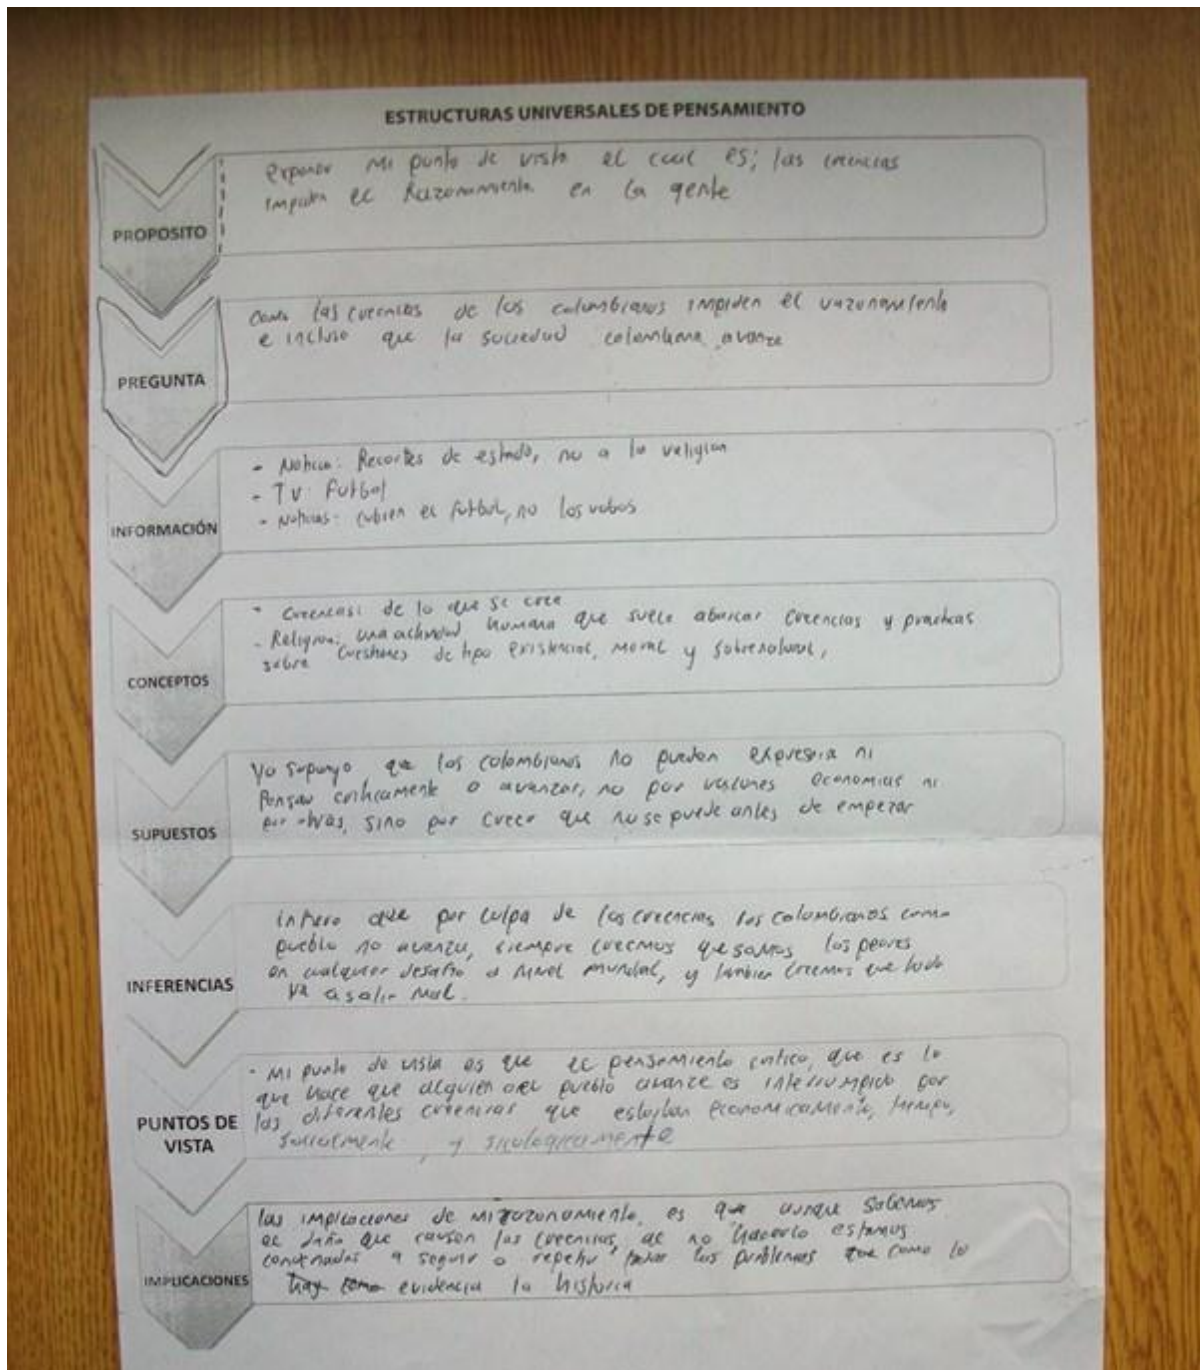 ESTRUCTURAS UNIVERSALES DE PENSAMIENTO
PROPOSITO
exponer mi punto de vista el cual es; las creencias
impiden el Razonamiento en la gente
PREGUNTA
Como las creencias de los colombianos impiden el razonamiento
e incluso que la sociedad colombiana avanze
INFORMACIÓN
- Noticia: Recortes de estado, no a la religion
- TV: Futbol
- Noticias: cubren el futbol, no los robos
CONCEPTOS
- Creencias: de lo que se cree
- Religion: una actividad humana que suele abarcar creencias y practicas
sobre cuestiones de tipo existencial, moral y sobrenatural,
SUPUESTOS
Yo supongo que los colombianos no pueden ni
Pensar criticamente o avanzar, no por razones economicas ni
por otras, sino por creer que no se puede antes de empezar
INFERENCIAS
infiero que por culpa de las creencias los colombianos como
pueblo no avanza, siempre creemos que somos los peores
en cualquier desafio a nivel mundial, y tambien creemos que todo
va a salir mal.
PUNTOS DE
VISTA
- Mi punto de vista es que el pensamiento critico, que es lo
que hace que alguien del pueblo avanze es interrumpido por
las diferentes creencias que economicamente, tiempo,
socialmente, y sicologicamente
IMPLICACIONES
las implicaciones de mi razonamiento, es que aunque sabemos
el daño que causan las creencias, de no hacerlo estamos
condenados a seguir o repetir los problemas como lo
evidencia la historia